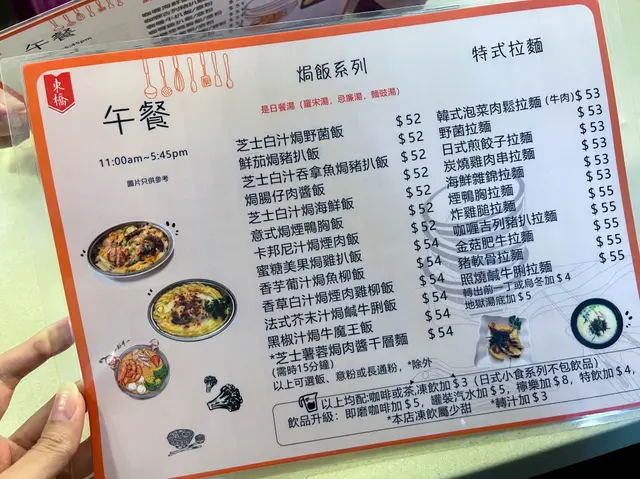 東橋
午餐
11:00am~5:45pm
圖片只供參考
焗飯系列
是日餐湯（羅宋湯，忌廉湯，麵豉湯）
芝士白汁焗野菌飯 $52
鮮茄焗豬扒飯 $52
芝士白汁吞拿魚焗豬扒飯 $52
焗腸仔肉醬飯 $52
芝士白汁焗海鮮飯 $52
意式焗煙鴨胸飯 $52
卡邦尼汁焗煙肉飯 $54
蜜糖美果焗雞扒飯 $54
香芋葡汁焗魚柳飯 $54
香草白汁焗煙肉雞柳飯 $54
法式芥末汁焗鹹牛脷飯 $54
黑椒汁焗牛魔王飯 $54
*芝士薯蓉焗肉醬千層麵 $54
(需時15分鐘)
以上可選飯、意粉或長通粉，*除外
特式拉麵
韓式泡菜肉鬆拉麵 (牛肉) $53
野菌拉麵 $53
日式煎餃子拉麵 $53
炭燒雞肉串拉麵 $53
海鮮雜錦拉麵 $53
煙鴨胸拉麵 $53
炸雞腿拉麵 $55
咖喱吉列豬扒拉麵 $55
金菇肥牛拉麵 $55
豬軟骨拉麵 $55
照燒鹹牛脷拉麵 $55
轉出前一丁或烏冬加 $4
地獄湯底加 $5
以上均配:咖啡或茶,凍飲加 $3 (日式小食系列不包飲品)
飲品升級：即磨咖啡加 $5，罐裝汽水加 $5，檸樂加 $8，特飲加 $4，
*本店凍飲屬少甜 *轉汁加 $3